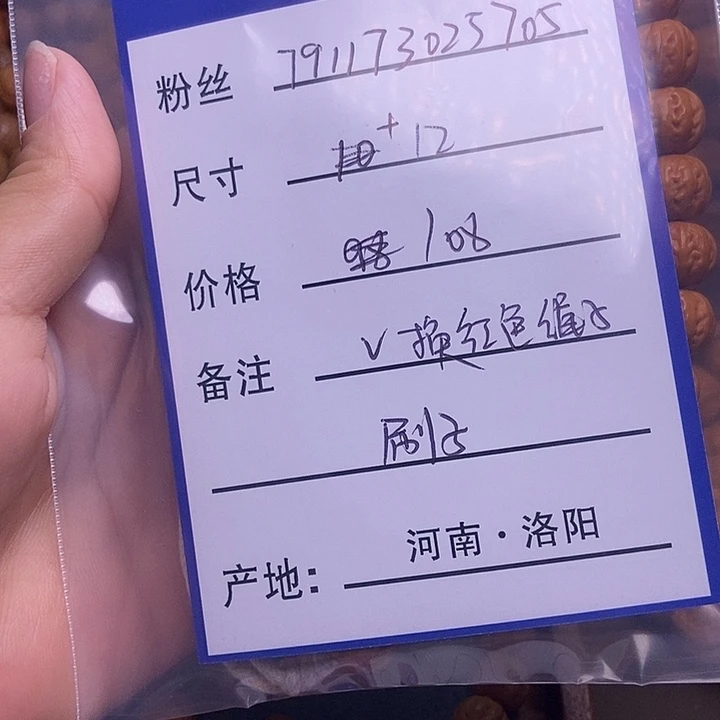 粉丝 791173025705
尺寸 +12
价格 108
备注 √换红色绳子
刷子
产地: 河南·洛阳